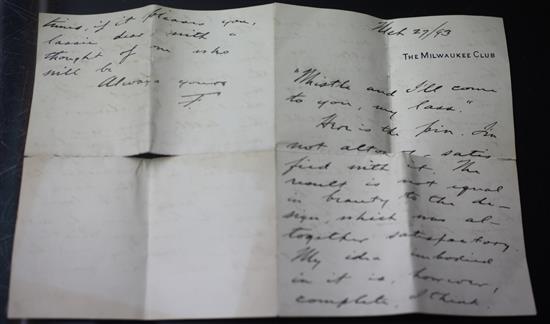 Mch 27/93
THE MILWAUKEE CLUB
"Whistle and I'll come
to you, my lass."
Here is the pin. I'm
not altog satis
fied with it. The
result is not equal
in beauty to the de-
sign, which was al-
together satisfactory.
My idea embodied
in it is, however,
complete, I think.
times, if it pleases you,
lassie dear with a
thought of me who
will be
Always yours
F.